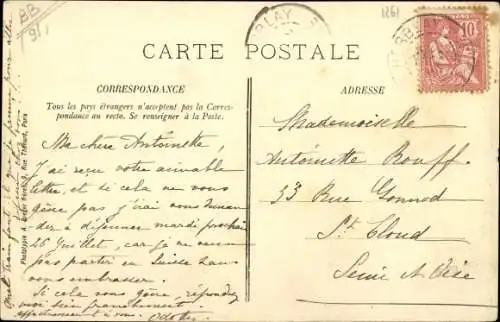 BB
9/1
1261
CARTE POSTALE
CORRESPONDANCE
Tous les pays étrangers n'acceptent pas la Corres-
pondance au recto. Se renseigner à la Poste.
ADRESSE
10
Ma chère Antoinette,
J'ai reçu votre aimable
lettre, et si cela ne vous
gêne pas j'irai vous deman-
der à déjeuner mardi prochain
25 Juillet, car je ne veux
pas partir en Suisse sans
vous embrasser.
Si cela vous gêne, répondez
moi bien franchement
affectueusement à vous. Odette.
Quel train faut-il que je prenne pour aller
Mademoiselle
Antoinette Bouff.
53 Rue Gounod
St Cloud
Seine et Oise
Phototypie A. Rue Thénard, Paris